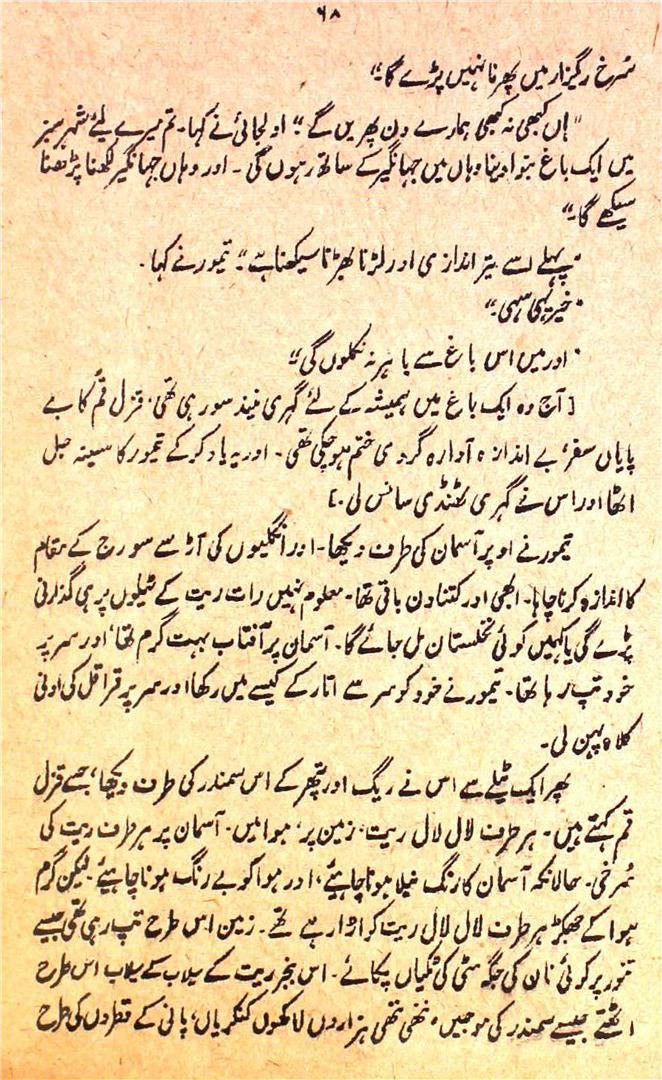 ۶۸
سُرخ ریگزار میں پھرنا نہیں پڑے گا۔"
"ہاں کبھی نہ کبھی ہمارے دن پھریں گے۔" اولجائی نے کہا۔ تم میرے لئے شہر سبز
میں ایک باغ بنوا دینا وہاں میں جہانگیر کے ساتھ رہوں گی۔ اور وہاں جہانگیر لکھنا پڑھنا
سیکھے گا۔"
"پہلے اسے تیر اندازی اور لڑنا بھڑنا سیکھنا ہے۔" تیمور نے کہا۔
"خیر یہی سہی۔"
"اور میں اس باغ سے باہر نہ نکلوں گی۔"
[آج وہ ایک باغ میں ہمیشہ کے لئے گہری نیند سو رہی تھی، قزل قُم کا بے
پایاں سفر، بے اندازہ آوارہ گردی ختم ہو چکی تھی۔ اور یہ یاد کر کے تیمور کا سینہ جل
اٹھا اور اس نے گہری ٹھنڈی سانس لی۔]
تیمور نے اوپر آسمان کی طرف دیکھا۔ اور انگلیوں کی آڑ سے سورج کے مقام
کا اندازہ کرنا چاہا۔ ابھی اور کتنا دن باقی تھا۔ معلوم نہیں رات ریت کے ٹیلوں پر ہی گذارنی
پڑے گی یا کہیں کوئی نخلستان مل جائے گا۔ آسمان پر آفتاب بہت گرم تھا، اور سر پر
خود تپ رہا تھا۔ تیمور نے خود کو سر سے اتار کے کیسے میں رکھا اور سر پر قراقل کی اونی
کلاہ پہن لی۔
پھر ایک ٹیلے سے اس نے ریگ اور پتھر کے اس سمندر کی طرف دیکھا، جسے قزل
قم کہتے ہیں۔ ہر طرف لال لال ریت، زمین پر، ہوا میں۔ آسمان پر ہر طرف ریت کی
سُرخی۔ حالانکہ آسمان کا رنگ نیلا ہونا چاہیئے، اور ہوا کو بے رنگ ہونا چاہیئے۔ لیکن گرم
ہوا کے جھکڑ ہر طرف لال لال ریت کو اڑا رہے تھے۔ زمین اس طرح تپ رہی تھی جیسے
تنور پر کوئی نان کی جگہ مٹی کی ٹکیاں پکائے۔ اس بنجر ریت کے سیلاب کے سیلاب اس طرح
اٹھتے جیسے سمندر کی موجیں، ننھی ننھی ہزاروں لاکھوں کنکریاں، پانی کے قطروں کی طرح